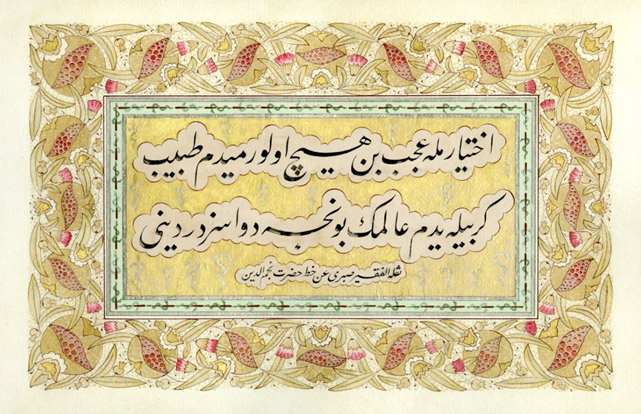 اختيارمله عجب بن هيچ اولورميدم طبيب
كربيله يدم عالمك بونجه دواسز دردينى
نقله الفقير صبرى عن خط حضرت نجم الدين